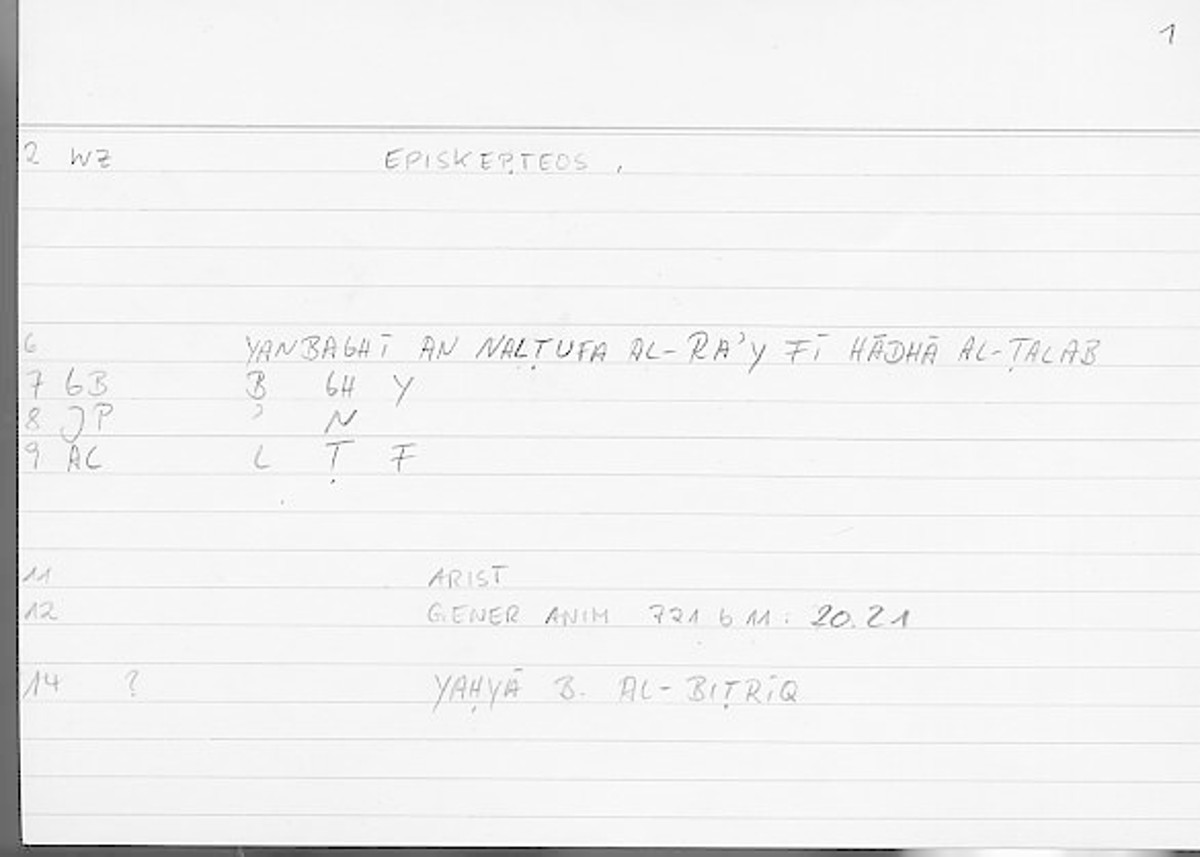 1
2 WZ EPISKEPṬEOS ,
6 YANBAGHĪ AN NALṬUFA AL-RA'Y FĪ HĀDHĀ AL-ṬALAB
7 GB B GH Y
8 JP ' N
9 AC L Ṭ F
11 ARIST
12 GENER ANIM 721 b 11 : 20.21
14 ? YAḤYĀ B. AL-BIṬRĪQ